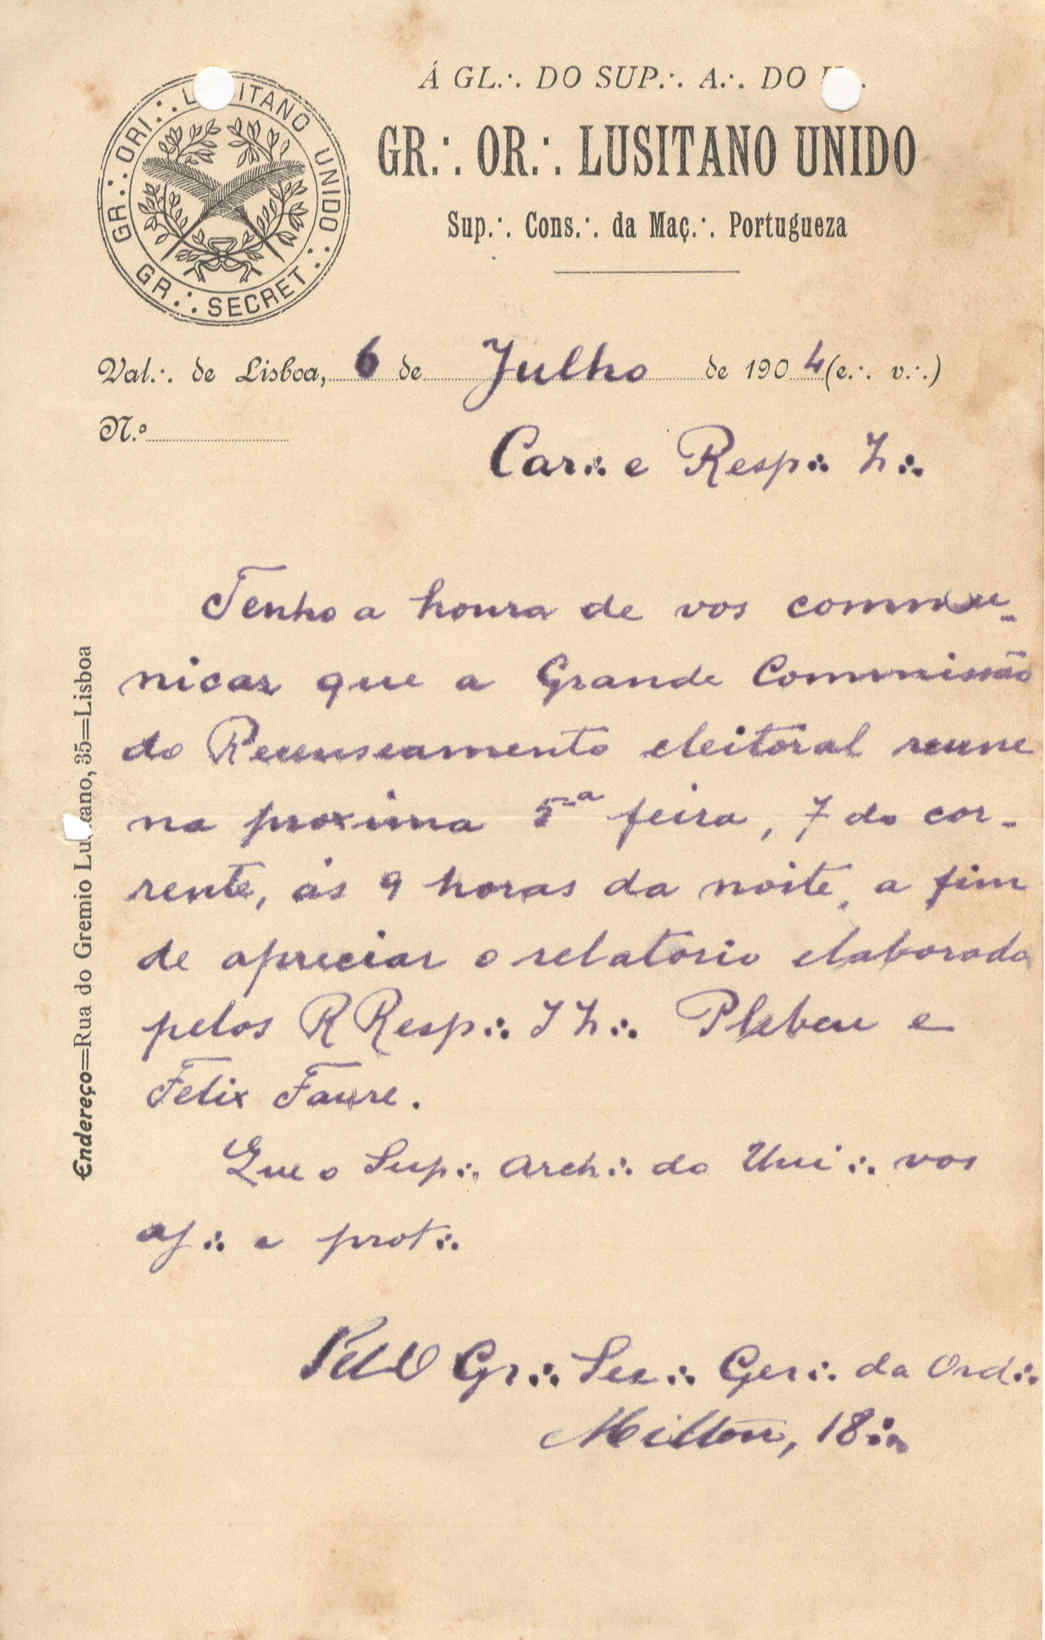 Á GL.·. DO SUP.·. A.·. DO
GR.·. OR.·. LUSITANO UNIDO
Sup.·. Cons.·. da Maç.·. Portugueza
GR.·. ORI.·. LUSITANO UNIDO.·.
GR.·. SECRET.·.
Val.·. de Lisboa, 6 de Julho de 1904 (e.·. v.·.)
N.º
Car∴ e Resp∴ I∴
Tenho a honra de vos commu-
nicar que a Grande Commissão
do Recenseamento eleitoral reune
na proxima 5ª feira, 7 do cor-
rente, ás 9 horas da noite, a fim
de apreciar o relatorio elaborado
pelos RResp∴ II∴ Plebeu e
Felix Faure.
Que o Sup∴ Arch∴ do Uni∴ vos
aj∴ e prot∴
Pelo Gr∴ Sec∴ Ger∴ da Ord∴
Milton, 18∴
Endereço=Rua do Gremio Lusitano, 35=Lisboa